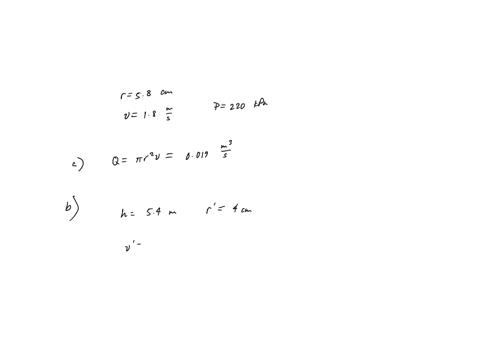 r = 5.8 cm
v = 1.8 m/s P = 220 kPa
a) Q = πr²v = 0.019 m³/s
b) h = 5.4 m r' = 4 cm
v' -